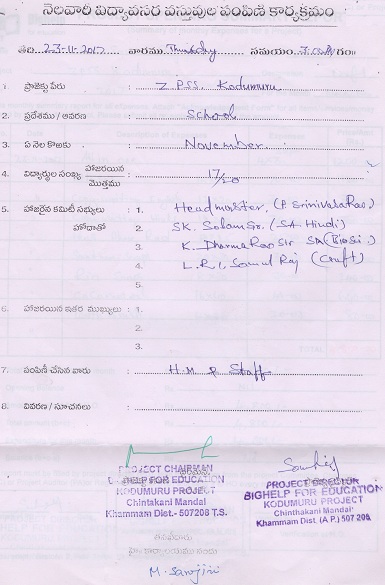 నెలవారి విద్యావసర వస్తువుల పంపిణి కార్యక్రమం
తేది 23-11-2017 వారము Thursday సమయం
1. ప్రాజెక్టు పేరు : Z.P.S.S. Kodumuru
2. ప్రదేశము / ఆవరణ : School
3. ఏ నెల కొఱకు : November
4. విద్యార్థుల సంఖ్య హాజరయిన మొత్తము : 17/20
5. హాజరైన కమిటీ సభ్యులు హోదాతో : 1. Headmaster. (P Srinivasa Rao)
2. SK. Salam Sr. (SA Hindi)
3. K. Dharma Rao Sir SA (Bio Sci)
4. L.R.C, Samul Raj (Craft)
5.
6. హాజరయిన ఇతర ముఖ్యులు : 1.
2.
3.
7. పంపిణీ చేసిన వారు : H.M & Staff
8. వివరణ / సూచనలు :
PROJECT CHAIRMAN
BIGHELP FOR EDUCATION
KODUMURU PROJECT
Chintakani Mandal
Khammam Dist.- 507208 T.S.
PROJECT DIRECTOR
BIGHELP FOR EDUCATION
KODUMURU PROJECT
Chinthakani Mandal
Khammam Dist. (A.P.) 507 208
M. Sarojini